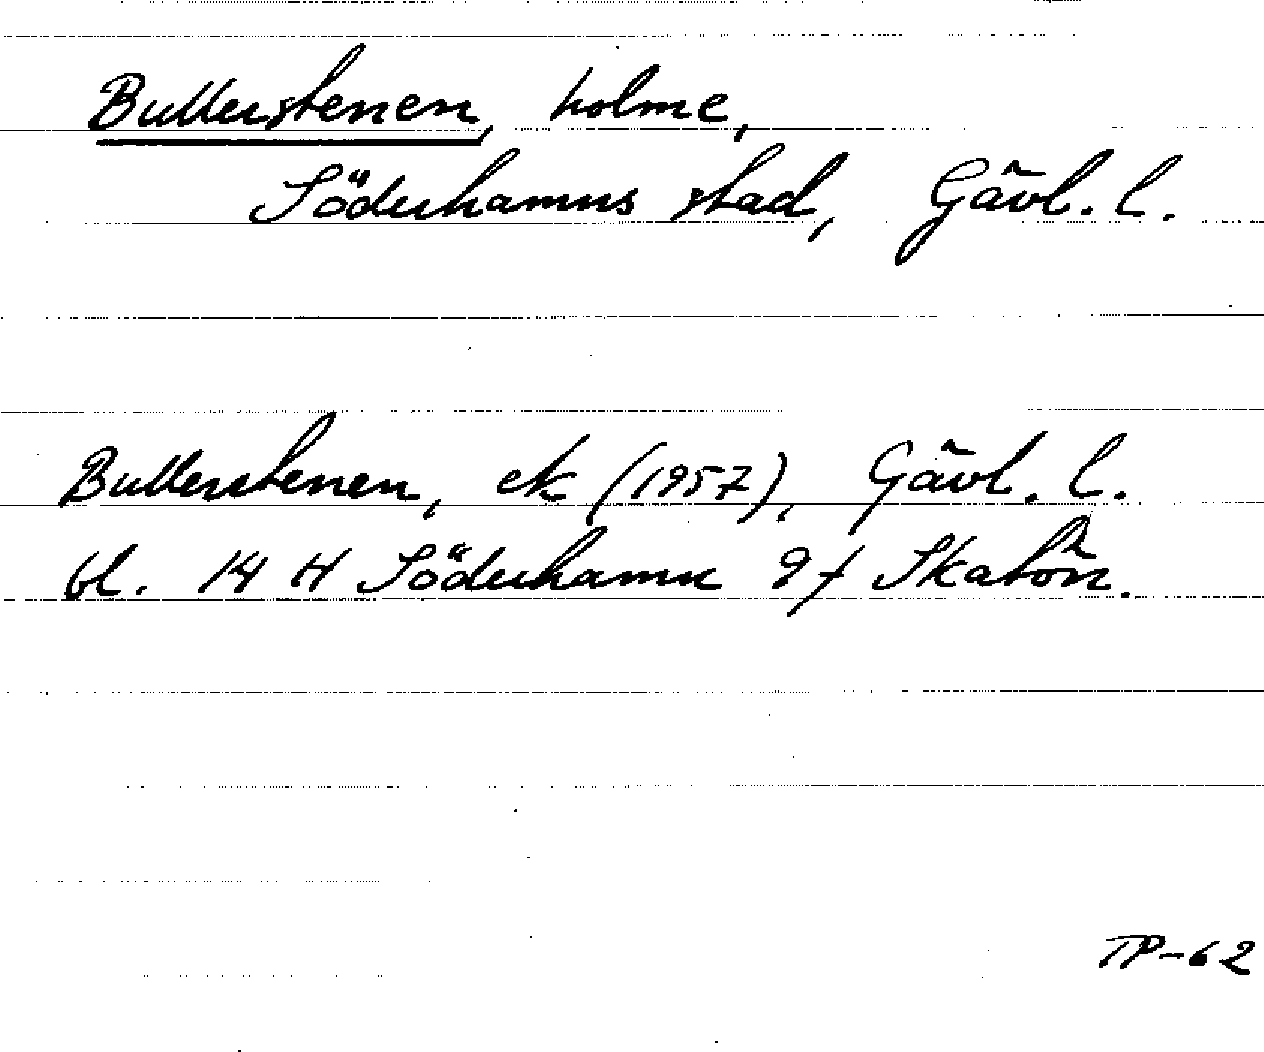 Bullerstenen, holme,
Söderhamns stad, Gävl. l.
Bullerstenen, ek (1957), Gävl. l.
bl. 14 H Söderhamn 9f Skatön.
TP-62